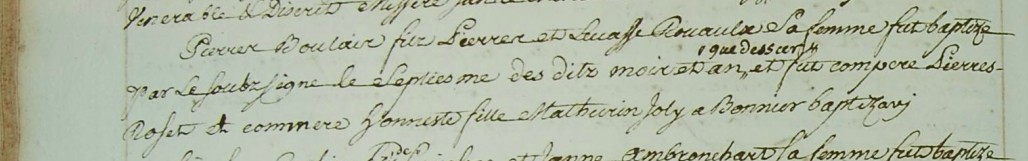 Venerable & Discret Messire
Pierres Boulair filz Pierres et Rouaulx Sa femme fut baptize
par Le soubzsigne le septiesme des ditz moir et an, "que dessus" et fut compere Pierres-
Roset et commere Honneste fille Mathurin Joly a Bonnier baptizavj
et Janne Ambronchart sa femme fut baptize